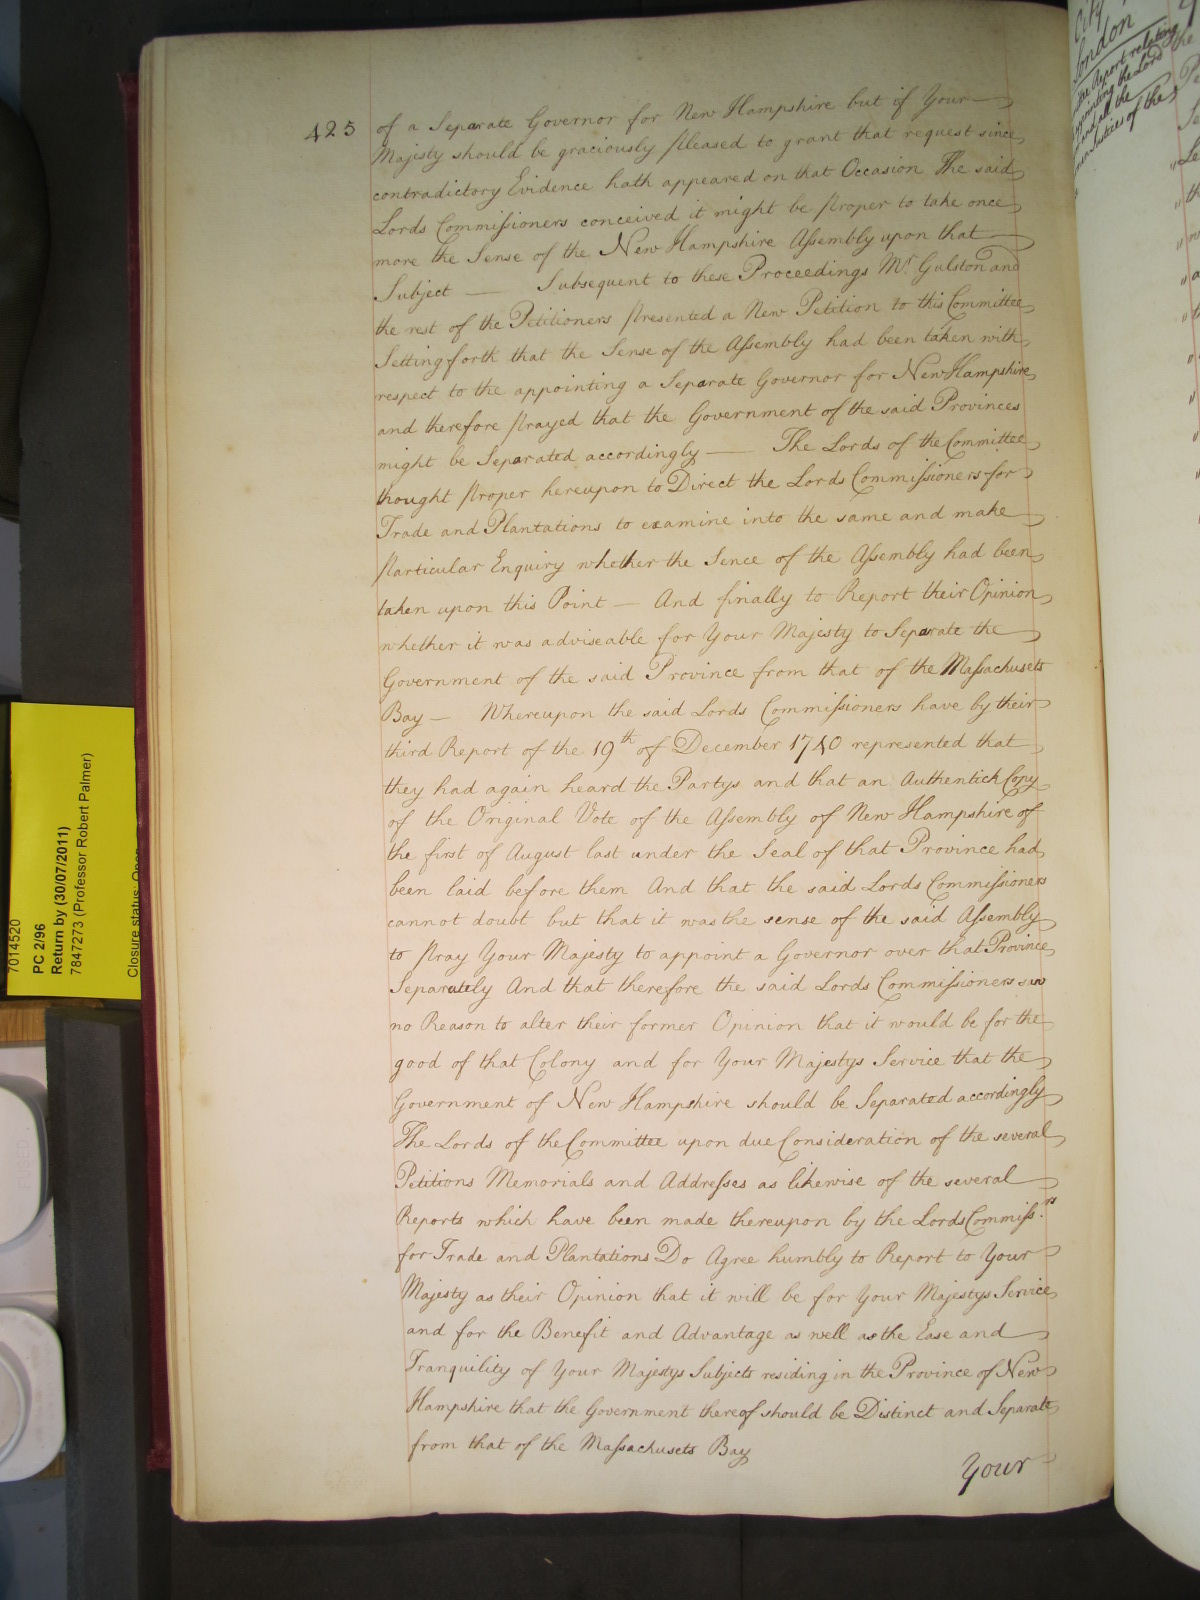 425
of a Separate Governor for New Hampshire but if Your
Majesty should be graciously pleased to grant that request since
contradictory Evidence hath appeared on that Occasion The said
Lords Commissioners conceived it might be proper to take once
more the Sense of the New Hampshire Assembly upon that
Subject — Subsequent to these Proceedings Mr. Gulston and
the rest of the Petitioners presented a New Petition to this Committee
Setting forth that the Sense of the Assembly had been taken with
respect to the appointing a Separate Governor for New Hampshire
and therefore prayed that the Government of the said Provinces
might be Separated accordingly — The Lords of the Committee
thought proper hereupon to Direct the Lords Commissioners for
Trade and Plantations to examine into the same and make
particular Enquiry whether the Sence of the Assembly had been
taken upon this Point — And finally to Report their Opinion
whether it was adviseable for Your Majesty to Separate the
Government of the said Province from that of the Massachusets
Bay — Whereupon the said Lords Commissioners have by their
third Report of the 19th of December 1740 represented that
they had again heard the Partys and that an Authentick Copy
of the Original Vote of the Assembly of New Hampshire of
the first of August last under the Seal of that Province had
been laid before them And that the said Lords Commissioners
cannot doubt but that it was the sense of the said Assembly
to pray Your Majesty to appoint a Governor over that Province
Separately And that therefore the said Lords Commissioners saw
no Reason to alter their former Opinion that it would be for the
good of that Colony and for Your Majestys Service that the
Government of New Hampshire should be Separated accordingly
The Lords of the Committee upon due Consideration of the several
Petitions Memorials and Addresses as likewise of the several
Reports which have been made thereupon by the Lords Commiss.rs
for Trade and Plantations Do Agree humbly to Report to Your
Majesty as their Opinion that it will be for Your Majestys Service
and for the Benefit and Advantage as well as the Ease and
Tranquility of Your Majestys Subjects residing in the Province of New
Hampshire that the Government thereof should be Distinct and Separate
from that of the Massachusets Bay
Your
City
London
Report relating
appointing the Lord
and all the
Justices of the
7014520
PC 2/96
Return by (30/07/2011)
7847273 (Professor Robert Palmer)
Closure status: Open